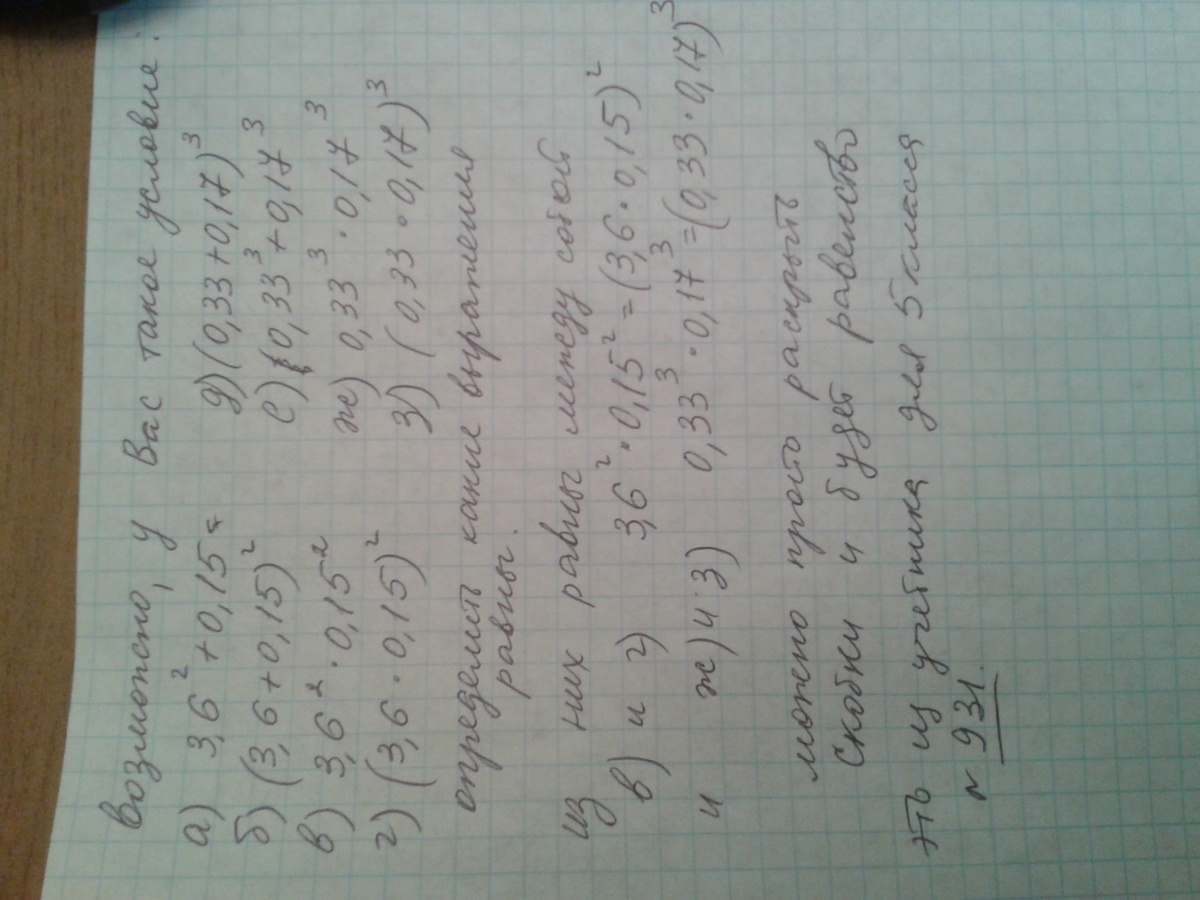 Возможно, у Вас такое условие:
а) 3,6² + 0,15² д) (0,33+0,17)³
б) (3,6+0,15)² е) 0,33³+0,17³
в) 3,6² · 0,15² ж) 0,33³ · 0,17³
г) (3,6 · 0,15)² з) (0,33 · 0,17)³
определить какие выражения
равны.
из них равны между собой
в) и г) 3,6² · 0,15² = (3,6 · 0,15)²
и ж) и з) 0,33³ · 0,17³ = (0,33 · 0,17)³
можно просто раскрыть
скобки и будет равенство
это из учебника для 5 класса
№ 931.